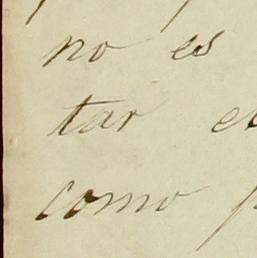 no es
tar
como